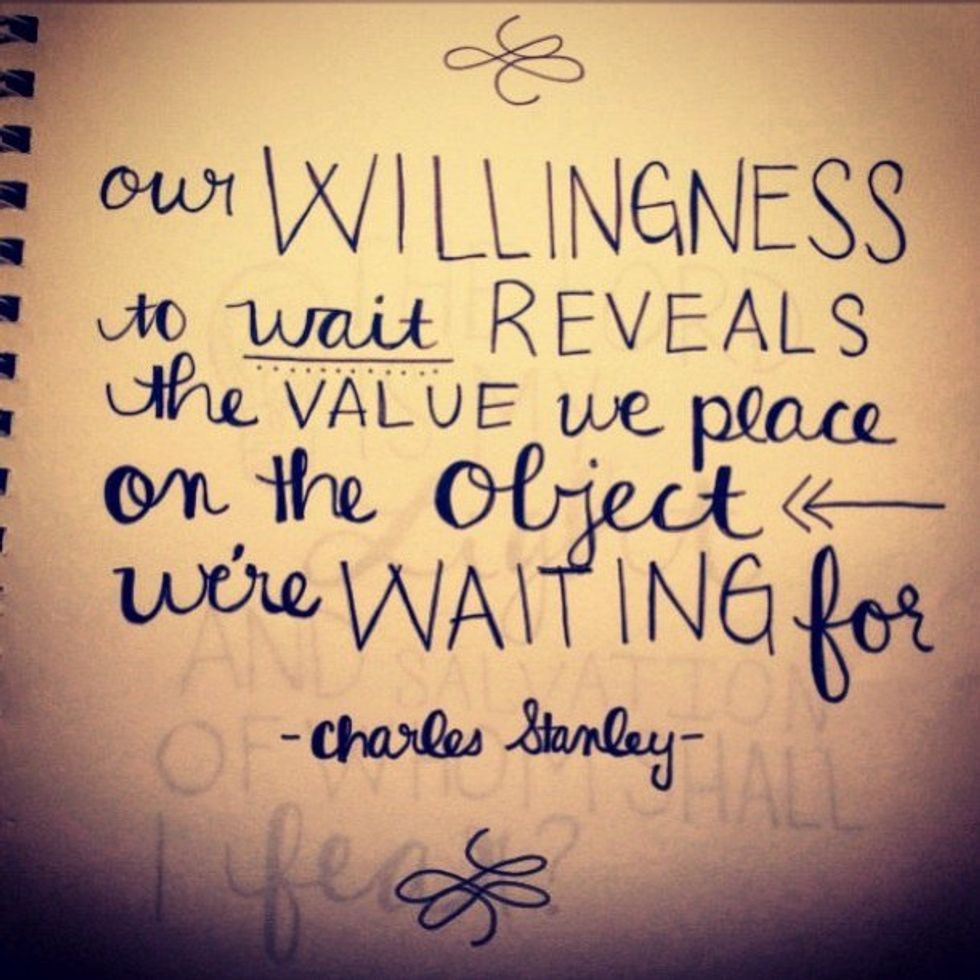 our WILLINGNESS
to wait REVEALS
the VALUE we place
on the object
we're WAITING for
-Charles Stanley-
THE LORD
IS MY
Light
AND SALVATION
OF WHOM SHALL
I fear?